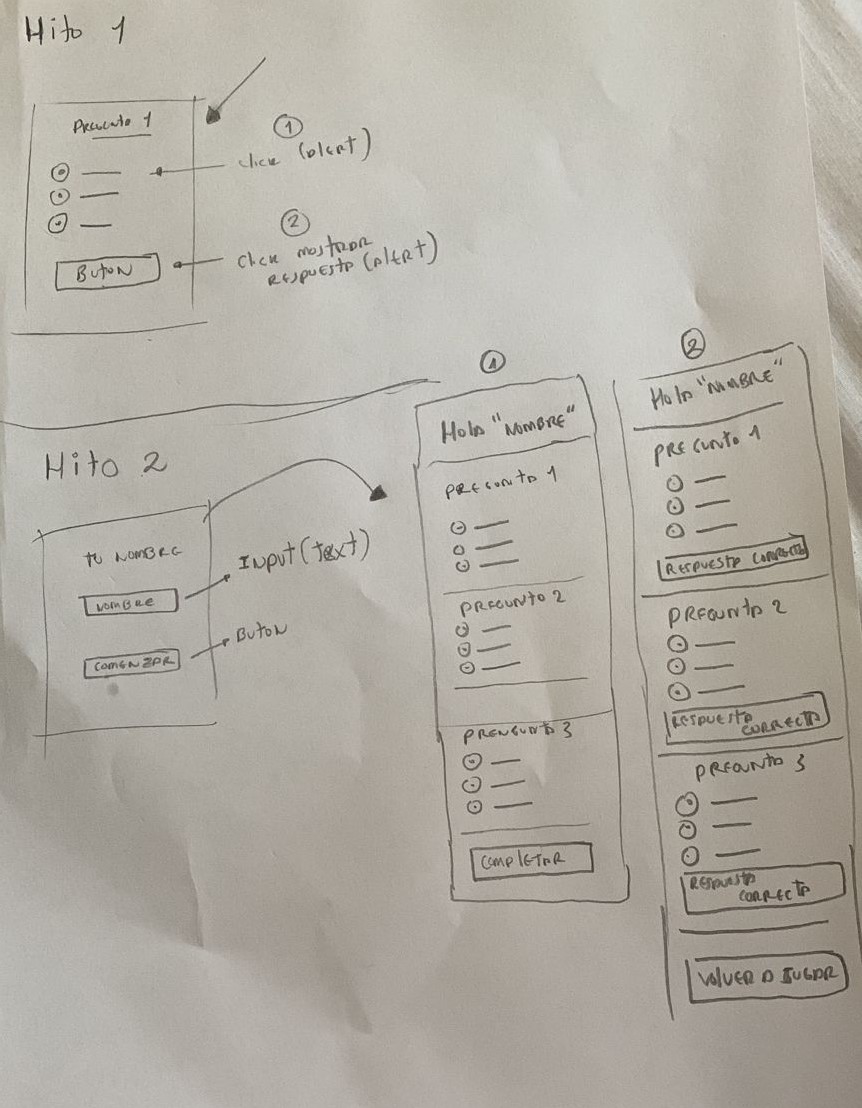 Hito 1
Pregunta 1
1
click (alert)
2
click mostrar
respuesta (alert)
Buton
Hito 2
tu nombre
nombre
Input (text)
comenzar
Buton
1
Hola "nombre"
pregunta 1
pregunta 2
prengunta 3
completar
2
Hola "nombre"
pregunta 1
respuesta correcta
pregunta 2
respuesta
correcta
pregunta 3
respuesta
correcta
volver a jugar